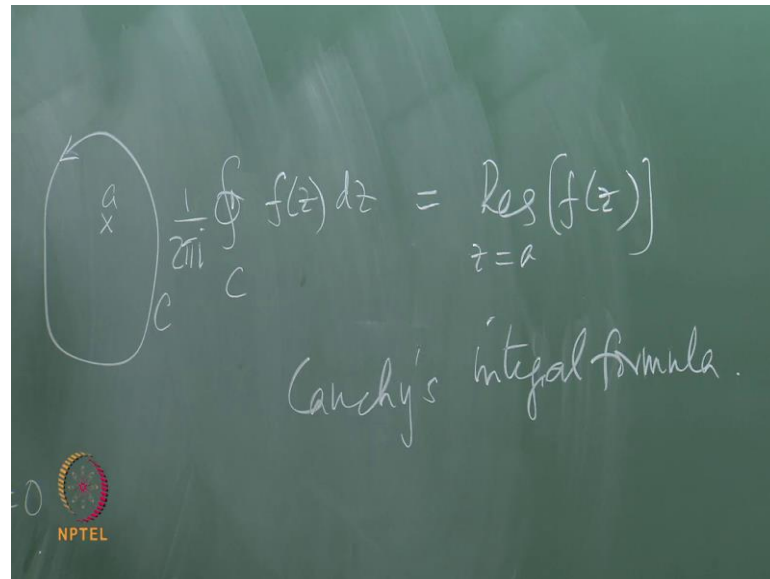 a
x
C
1/2πi ∮ f(z) dz = Res[f(z)]
C z = a
Cauchy's integral formula.
=0
NPTEL